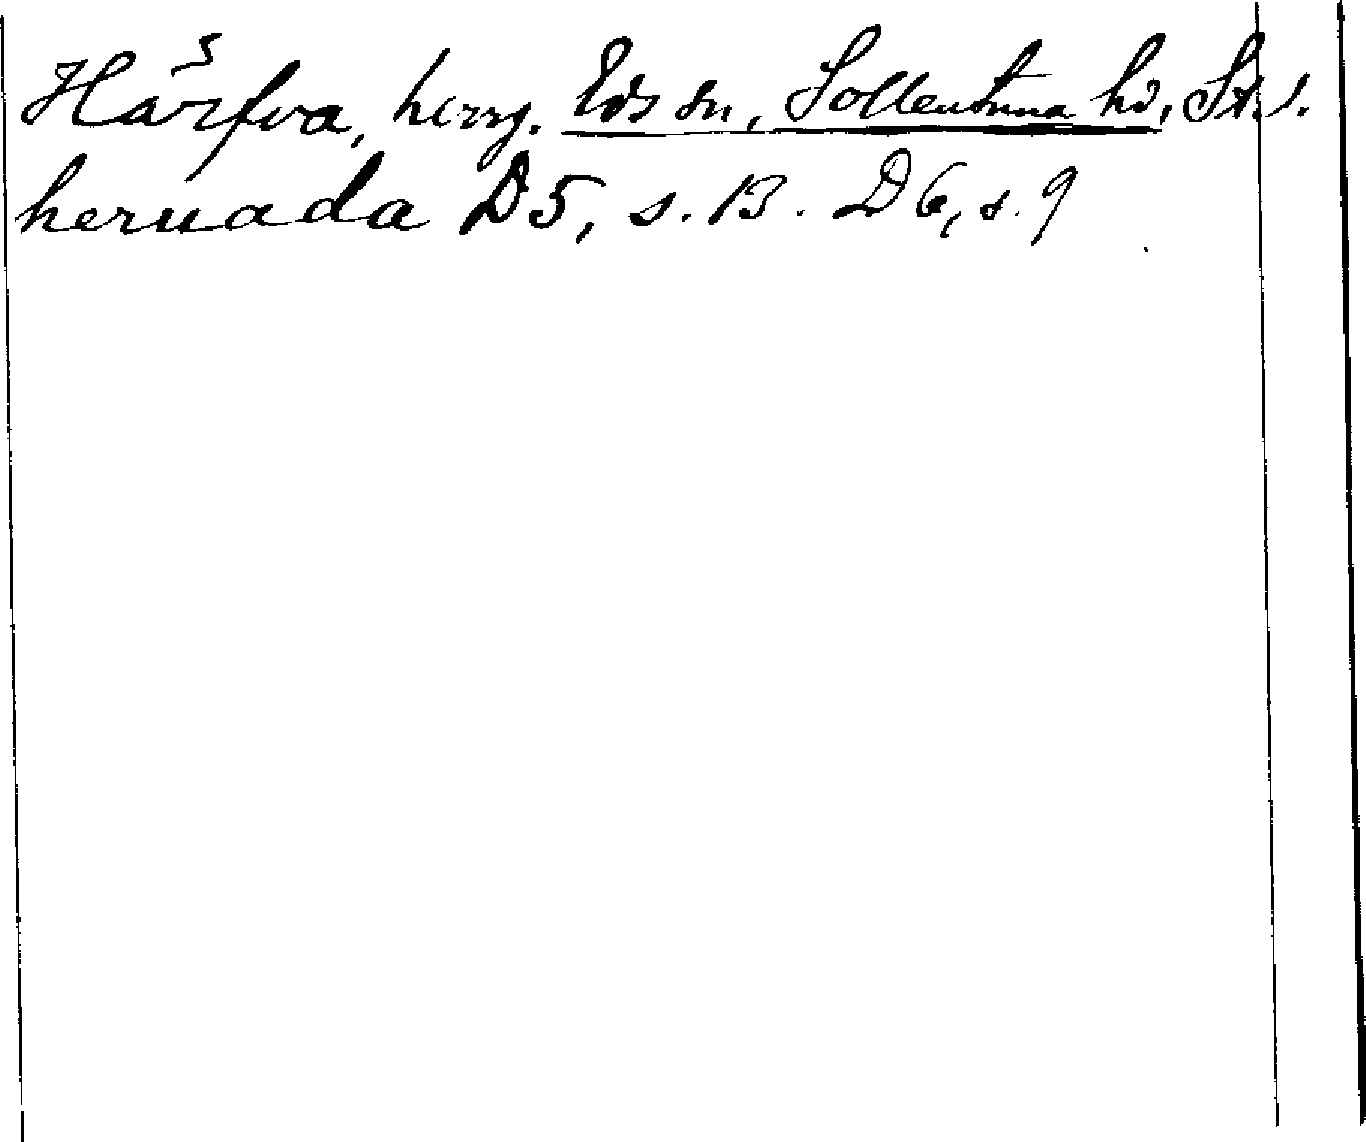 Härfva, herrg. Eds sn, Sollentuna hd, St. s.
hernada D5, s. 13. D6, s. 9